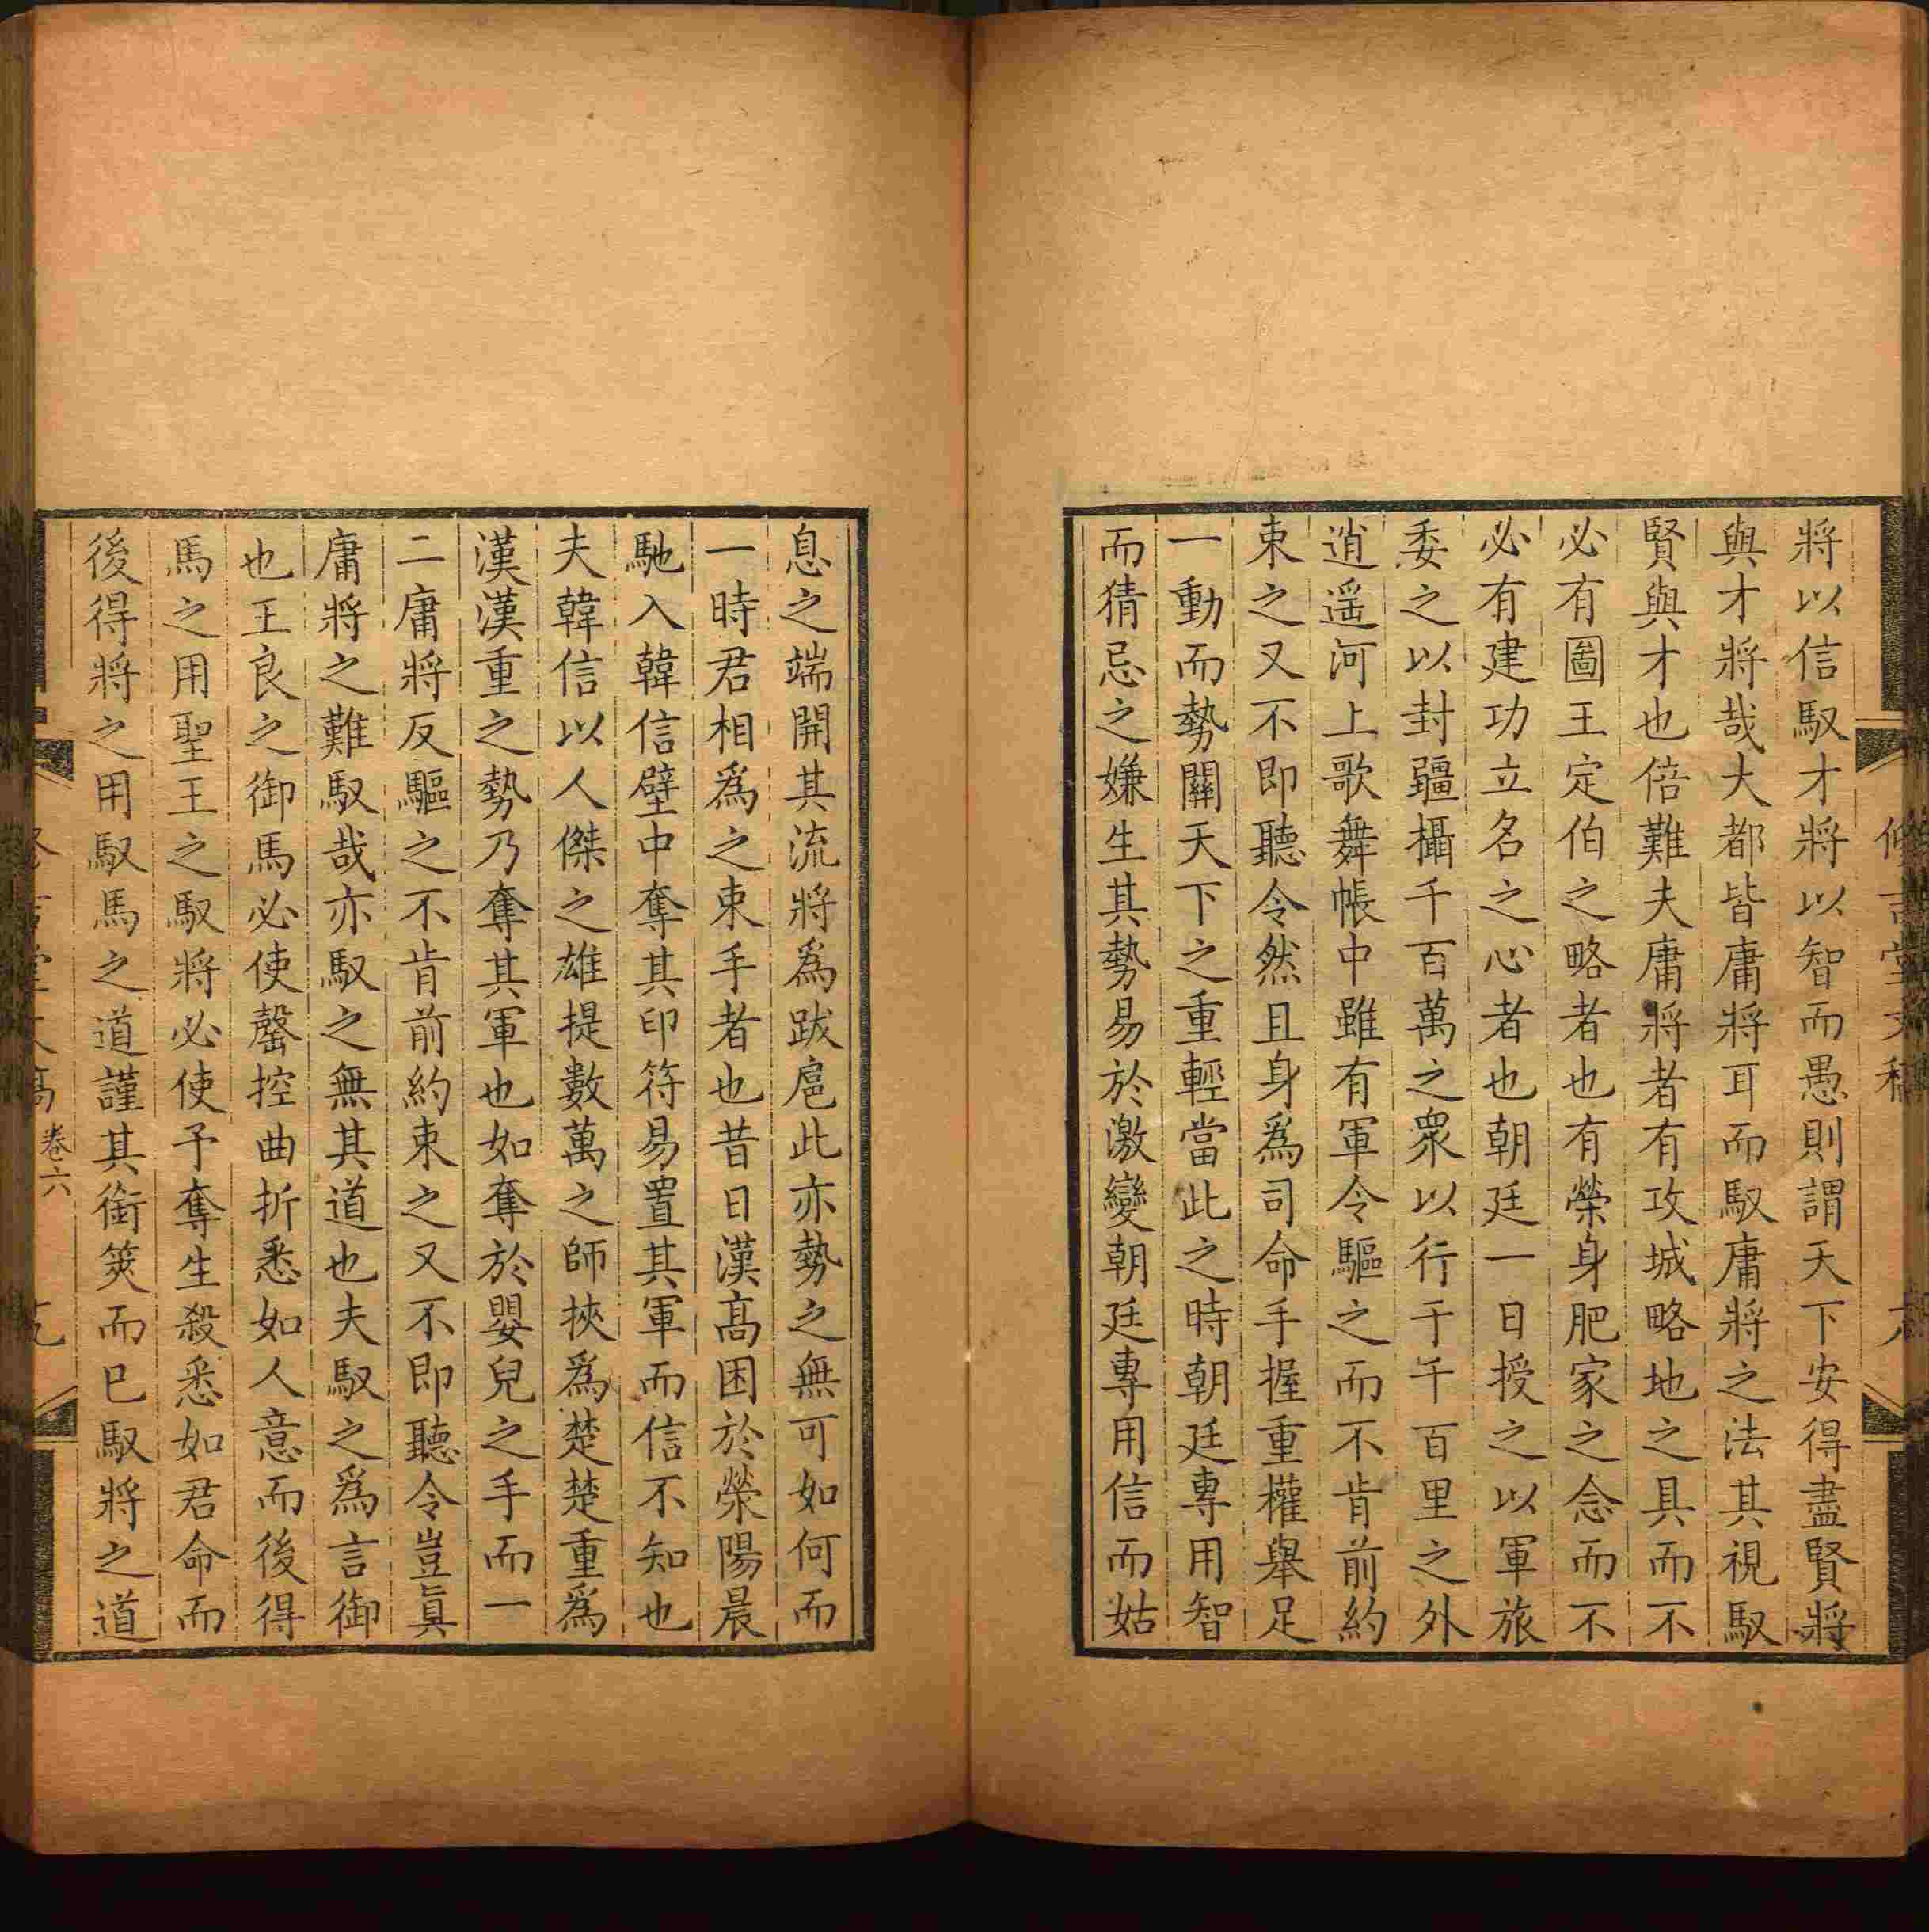 將以信馭才將以智而愚則謂天下安得盡賢將
與才將哉大都皆庸將耳而馭庸將之法其視馭
賢與才也倍難夫庸將者有攻城略地之具而不
必有圖王定伯之略者也有榮身肥家之念而不
必有建功立名之心者也朝廷一日授之以軍旅
委之以封疆攝千百萬之衆以行于千百里之外
逍遥河上歌舞帳中雖有軍令驅之而不肯前約
束之又不即聽令然且身爲司命手握重權舉足
一動而勢關天下之重輕當此之時朝廷專用智
而猜忌之嫌生其勢易於激變朝廷專用信而姑
息之端開其流將爲跋扈此亦勢之無可如何而
一時君相爲之束手者也昔日漢高困於滎陽晨
馳入韓信壁中奪其印符易置其軍而信不知也
夫韓信以人傑之雄提數萬之師挾爲楚楚重爲
漢漢重之勢乃奪其軍也如奪於嬰兒之手而一
二庸將反驅之不肯前約束之又不即聽令豈眞
庸將之難馭哉亦馭之無其道也夫馭之爲言御
也王良之御馬必使罄控曲折悉如人意而後得
馬之用聖王之馭將必使予奪生殺悉如君命而
後得將之用馭馬之道謹其銜筴而已馭將之道
卷六